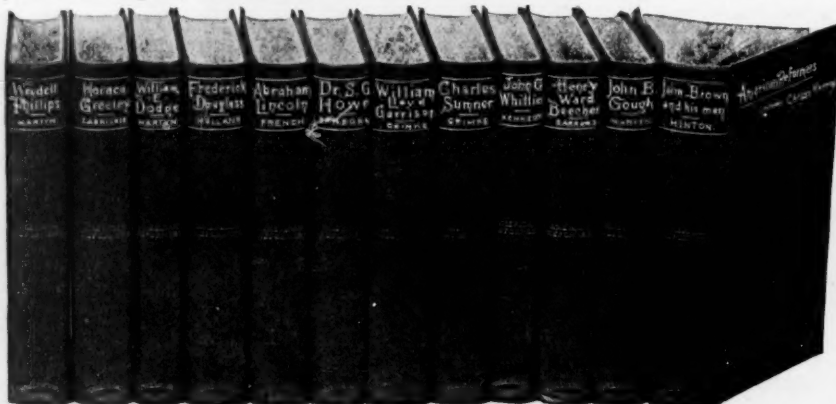 Wendell
Phillips
MARTYN
Horace
Greeley
William
Dodge
MARTYN
Frederick
Douglass
HOLLAND
Abraham
Lincoln
FRENCH
Dr. S. G.
Howe
William
Lloyd
Garrison
GRIMKE
Charles
Sumner
GRIMKE
John G
Whittier
KENNEDY
Henry
Ward
Beecher
John B
Gough
John Brown
and his men
HINTON.
American Reformers